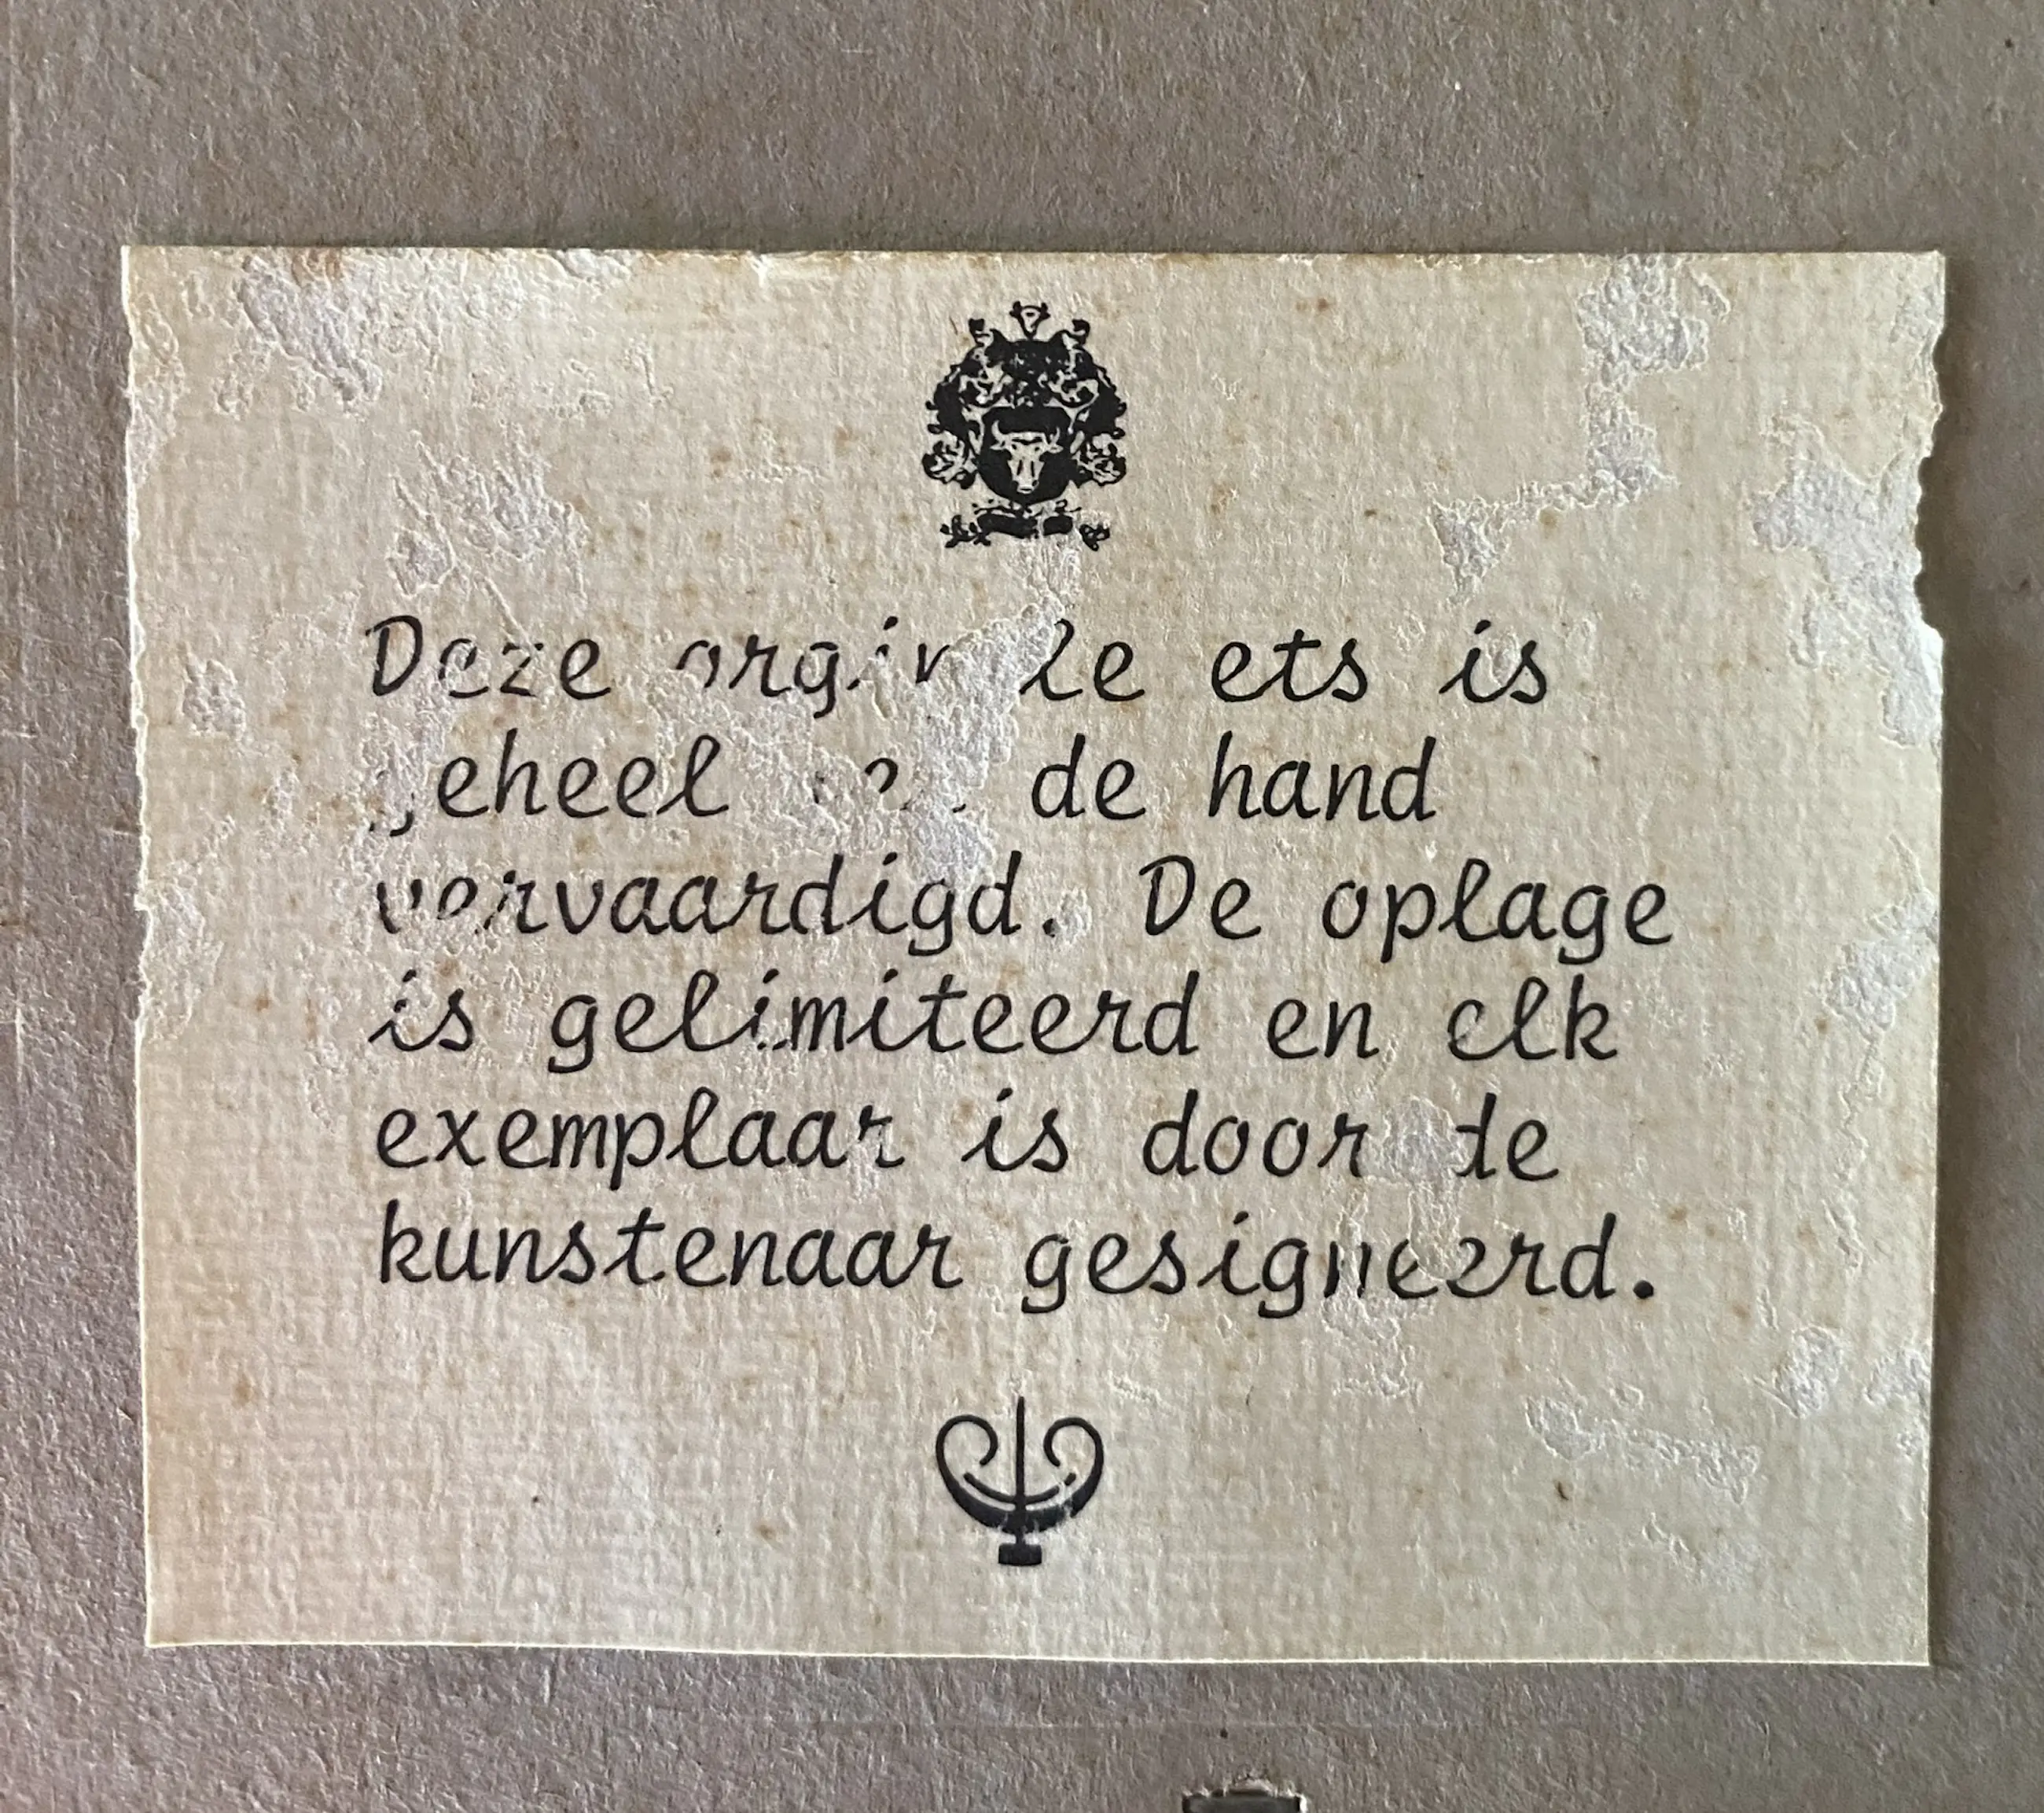 Deze orginale ets is
geheel de hand
vervaardigd. De oplage
is gelimiteerd en elk
exemplaar is door de
kunstenaar gesigneerd.